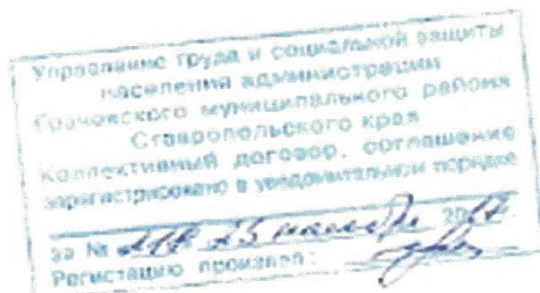 Управление труда и социальной защиты
населения администрации
Грачевского муниципального района
Ставропольского края
Коллективный договор, соглашение
зарегистрировано в уведомительном порядке
за № 23 2017
Регистрацию произвел: